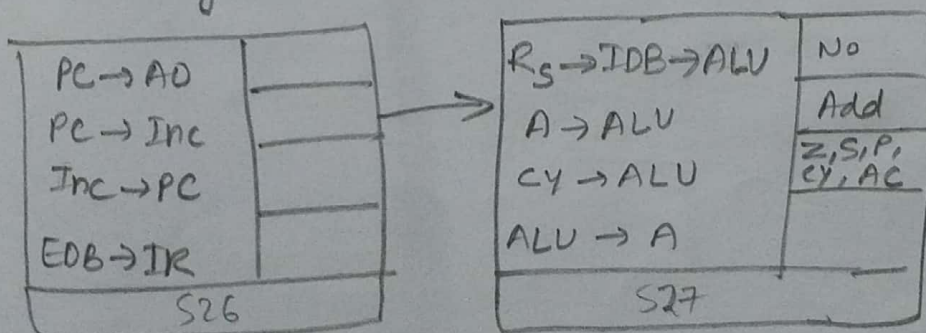 PC→AO
PC→Inc
Inc→PC
EDB→IR
S26
RS→IDB→ALU
A→ALU
CY→ALU
ALU→A
No
Add
Z,S,P,
CY,AC
S27